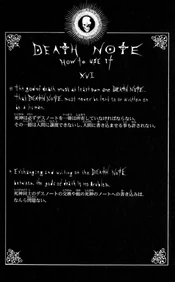 DEATH NOTE
How to use it
XVI
The god of death must at least own one DEATH NOTE.
That DEATH NOTE must never be lent to or written on
by a human.
死神は必ずデスノートを一冊は所有していなければならない。
その一冊は人間に譲渡できないし、人間に書き込ませる事も許されない。
Exchanging and writing on the DEATH NOTE
between the gods of death is no problem.
死神同士のデスノートの交換や他の死神のノートへの書き込みは、
なんら問題ない。